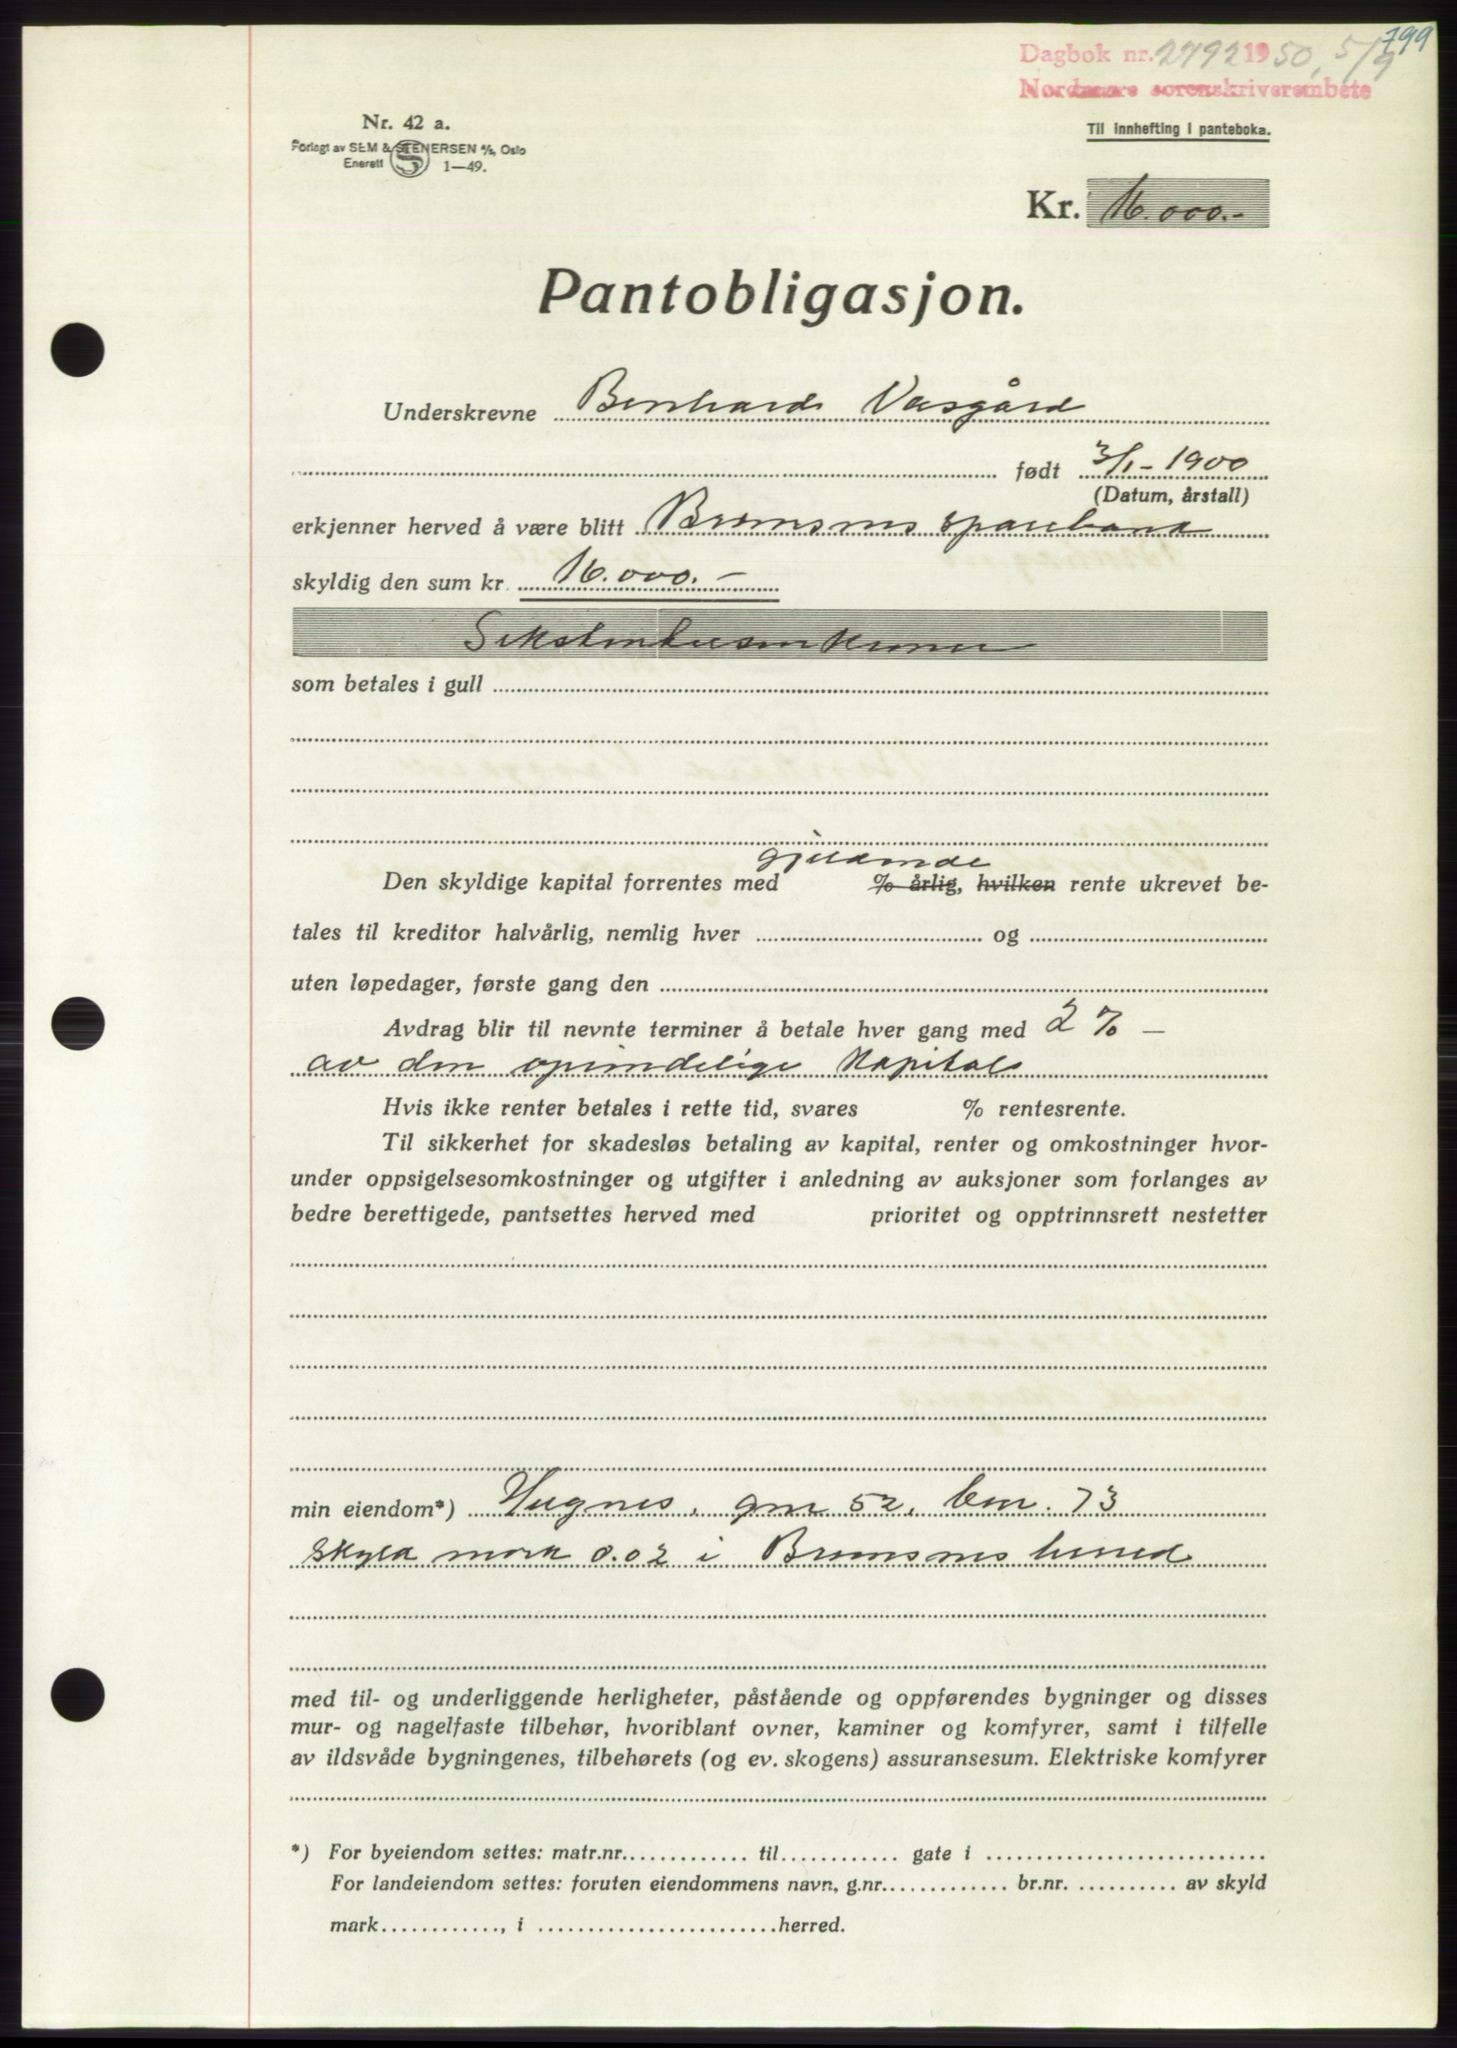 799
Dagbok nr. 2792 1950, 5/9
Nordmøre sorenskriverembete
Nr. 42 a.
Til innhefting i panteboka.
Forlagt av SEM & STENERSEN A/S, Oslo
Enerett 1—49.
Kr. 16.000.-
Pantobligasjon.
Underskrevne Bernhard Vasgård
født 3/1 - 1900
(Datum, årstall)
erkjenner herved å være blitt Bremsnes sparebank
skyldig den sum kr. 16.000.-
Sekstentusen kroner
som betales i gull
gjeldende
Den skyldige kapital forrentes med % årlig, hvilken rente ukrevet be-
tales til kreditor halvårlig, nemlig hver og
uten løpedager, første gang den
Avdrag blir til nevnte terminer å betale hver gang med 2 % —
av den oprindelige kapital
Hvis ikke renter betales i rette tid, svares % rentesrente.
Til sikkerhet for skadesløs betaling av kapital, renter og omkostninger hvor-
under oppsigelsesomkostninger og utgifter i anledning av auksjoner som forlanges av
bedre berettigede, pantsettes herved med prioritet og opptrinnsrett nestetter
min eiendom*) Hugnes, gnr 52, bnr. 73
skyld mark 0.02 i Bremsnes herred
med til- og underliggende herligheter, påstående og oppførendes bygninger og disses
mur- og nagelfaste tilbehør, hvoriblant ovner, kaminer og komfyrer, samt i tilfelle
av ildsvåde bygningenes, tilbehørets (og ev. skogens) assuransesum. Elektriske komfyrer
*) For byeiendom settes: matr.nr. til gate i
For landeiendom settes: foruten eiendommens navn, g.nr. br.nr. av skyld
mark , i herred.